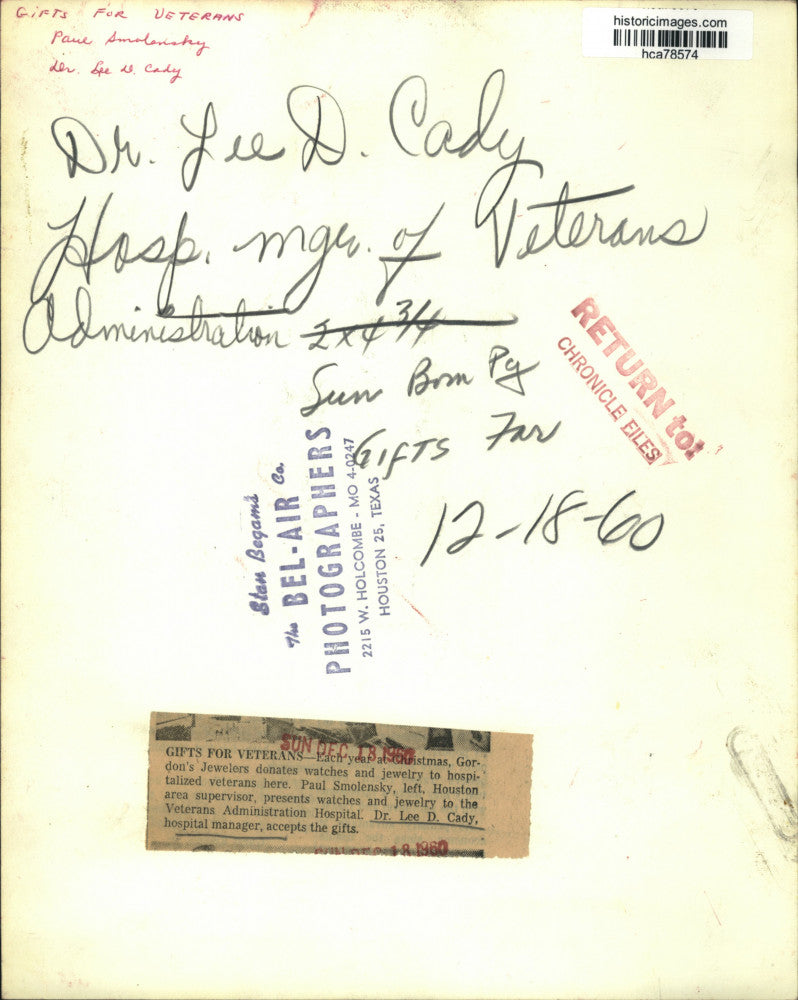 GIFTS FOR VETERANS
Paul Smolensky
Dr. Lee D. Cady
historicimages.com
hca78574
Dr. Lee D. Cady
Hosp. mgr. of Veterans
Administration 2x4 3/4
Sun Bom Pg
GIFTS For
12-18-60
RETURN to:
CHRONICLE FILES
Stan Begam's
The BEL-AIR Co.
PHOTOGRAPHERS
2215 W. HOLCOMBE - MO 4-0247
HOUSTON 25, TEXAS
SUN DEC 18 1960
GIFTS FOR VETERANS—Each year at Christmas, Gor-
don's Jewelers donates watches and jewelry to hospi-
talized veterans here. Paul Smolensky, left, Houston
area supervisor, presents watches and jewelry to the
Veterans Administration Hospital. Dr. Lee D. Cady,
hospital manager, accepts the gifts.
SUN DEC 18 1960